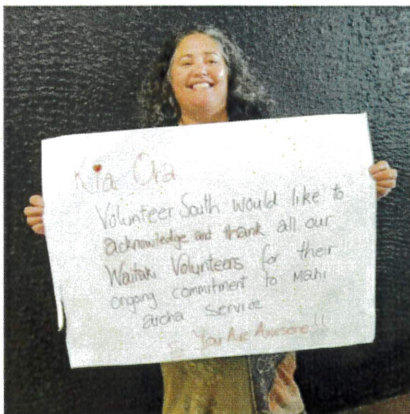 Kia Ora
Volunteer South would like to
acknowledge and thank all our
Waitaki Volunteers for their
ongoing commitment to Mahi
aroha service
You Are Awesome!!